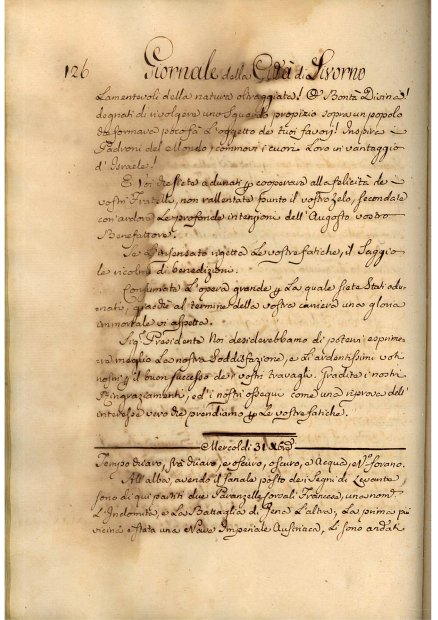 126 Giornale della Città di Livorno
Lamentevoli della natura oltraggiata! O' Bontà Divina!
degnati di rivolgere uno sguardo propizio sopra un popolo
che formava poco fà l'oggetto de tuoi favori! Inspira i
Padroni del Mondo, commovi i cuori Loro in vantaggio
d'Israele!
E Voi che siete adunati p cooperare alla felicità de
vostri Fratelli, non rallentate punto il vostro zelo, secondate
con ardore Le profonde intenzioni dell'Augusto vostro
Benefattore.
Se L'insensato rigetta Le vostre fatiche, il Saggio
le ricolma di benedizioni.
Consumate L'opera grande p La quale siete stati adu-
nati, al termine della vostra carriera una gloria
immortale vi aspetta.
Sigr Presidente Noi desiderebbamo di potervi esprime
re meglio La nostra Soddisfazione, e gl'ardentissimi voti
nostri p il buon successo de' vostri travagli. Gradite i nostri
Ringraziamenti, ed i nostri ossequi come una riprova dell'
interesse vivo che prendiamo p Le vostre fatiche.
Mercoldì 31
Tempo chiaro, chiaro, e oscuro, oscuro, e Acqua, Vto forano.
All'alba, avendo il fanale posto dei Segni di Levante
sono di qui partiti due Paranzelle Corsali Francesi, una nom
L'Indomita, e La Battaglia di Jena L'altra, La prima più
vicina è stata una Nave Imperiale Austriaca, Li sono andati